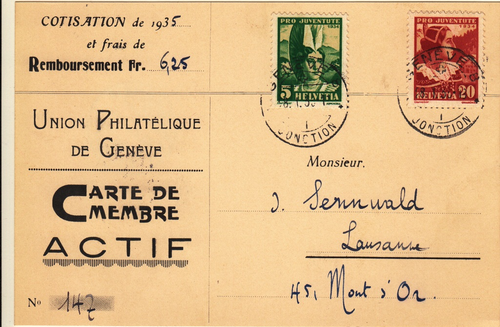 COTISATION de 1935
et frais de
Remboursement Fr. 6,25
UNION PHILATÉLIQUE
DE GENÈVE
CARTE DE
MEMBRE
ACTIF
No 147
PRO JUVENTUTE
1934
5 HELVETIA
PRO JUVENTUTE
1934
HELVETIA 20
GENÈVE
1
JONCTION
GENÈVE
1
JONCTION
Monsieur.
J. Sennwald
Lausanne
45, Mont d'Or.